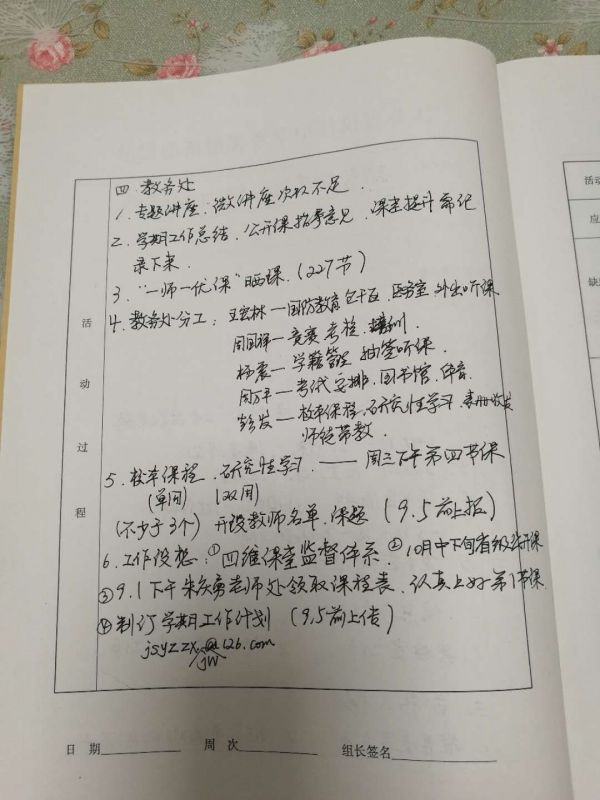 四 教务处
1. 专题讲座、微讲座次数不足.
2. 学期工作总结、公开课指导意见、课堂提升需记
录下来.
3. "一师一优课"晒课. (227节)
4. 教务处分工: 王宏林—国防教育 医务室 外出听课
周国祥—竞赛 考核 培训.
杨震—学籍管理 抽签听课.
周万平—考试安排. 图书馆. 体育.
彭发—校本课程. 研究性学习. 表册收发
师徒带教.
5. 校本课程、研究性学习. —— 周三下午第四节课
(单周) (双周)
(不少于3个) 开设教师名单、课题 (9.5前上报)
6. 工作设想: ① 四维课堂监督体系. ② 10月中下旬省级公开课
③ 9.1下午朱庆勇老师处领取课程表、认真上好第1节课
④ 制订学期工作计划 (9.5前上传)
jsyzzx@126.com
jw
活动过程
日 期 周 次 组长签名
活动
应
缺